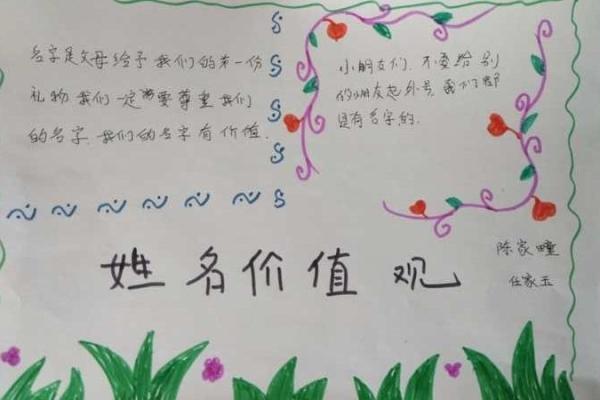 名字是父母给予我们的第一份
礼物我们一定要尊重我们
的名字.我们的名字有价值.
小朋友们.不要给别
的朋友起外号,我们都
是有名字的.
姓名价值观
陈家瞳
任家玉